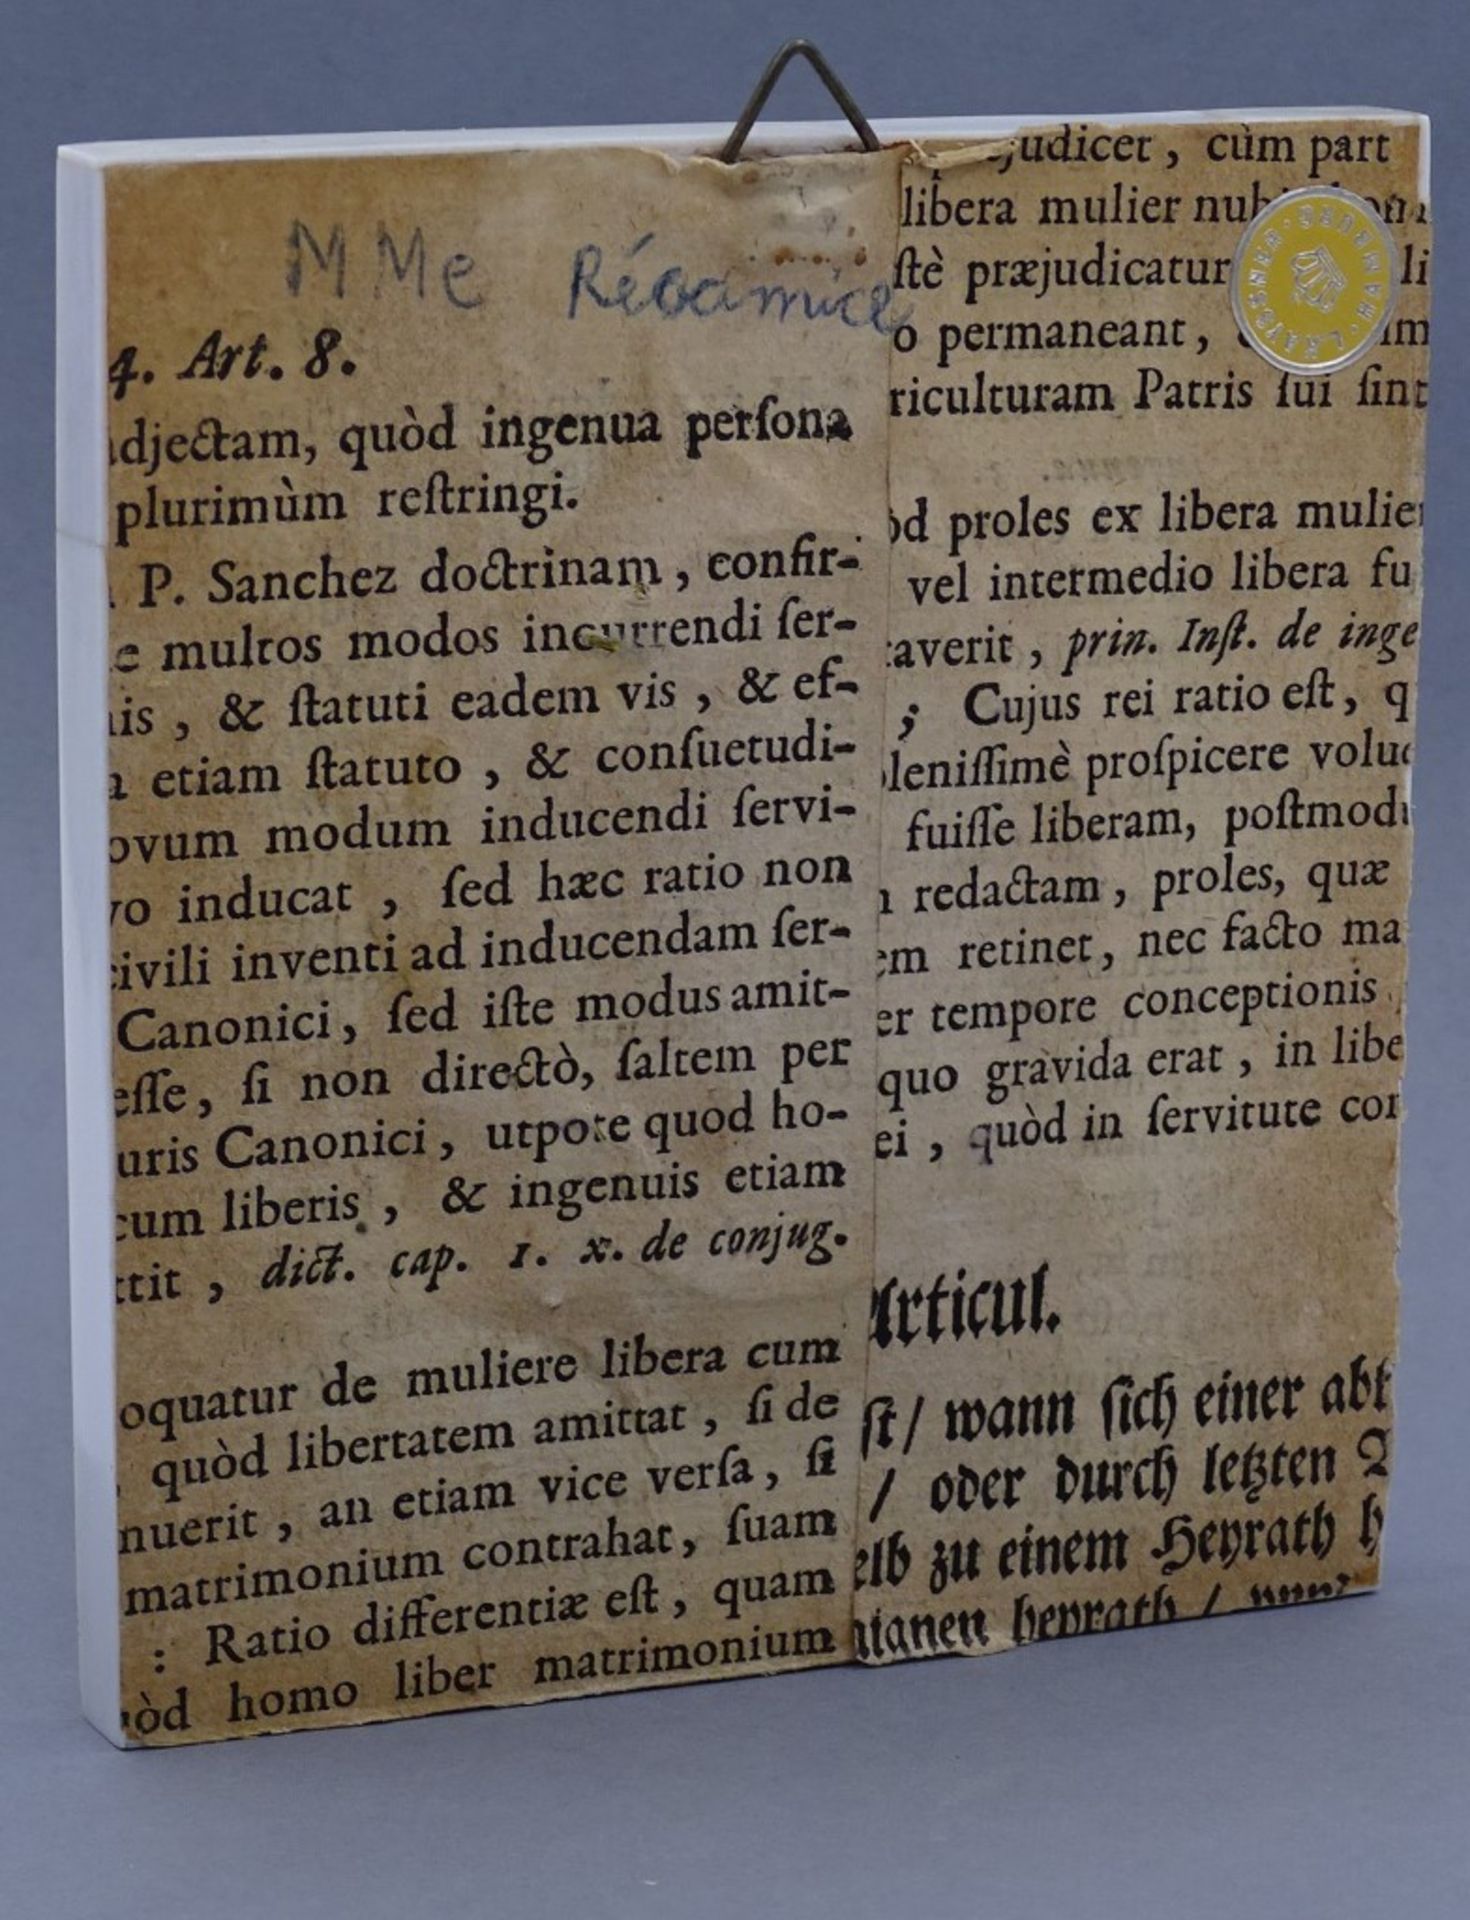 MMe Récamier
4. Art. 8.
adjectam, quòd ingenua perſona
plurimùm reſtringi.
P. Sanchez doctrinam, confir-
multos modos incurrendi ſer-
is, & ſtatuti eadem vis, & ef-
etiam ſtatuto, & conſuetudi-
ovum modum inducendi ſervi-
vo inducat, ſed hæc ratio non
civili inventi ad inducendam ſer-
Canonici, ſed iſte modus amit-
eſſe, ſi non directò, ſaltem per
uris Canonici, utpote quod ho-
cum liberis, & ingenuis etiam
ttit, dict. cap. 1. x. de conjug.
oquatur de muliere libera cum
quòd libertatem amittat, ſi de
nuerit, an etiam vice verſa, ſi
matrimonium contrahat, ſuam
: Ratio differentiæ eſt, quam
òd homo liber matrimonium
judicet, cùm part
libera mulier
ſtè præjudicatur li
o permaneant,
riculturam Patris ſui ſint
òd proles ex libera mulier
vel intermedio libera fu
taverit, prin. Inſt. de inge
; Cujus rei ratio eſt, q
leniſſimè proſpicere volu
fuiſſe liberam, poſtmod
redactam, proles, quæ
em retinet, nec facto ma
er tempore conceptionis
quo gravida erat, in libe
ei, quòd in ſervitute con
Articul.
ſt/ wann ſich einer abt
/ oder durch letzten
elb zu einem Heyrath h
tanen heyrath /